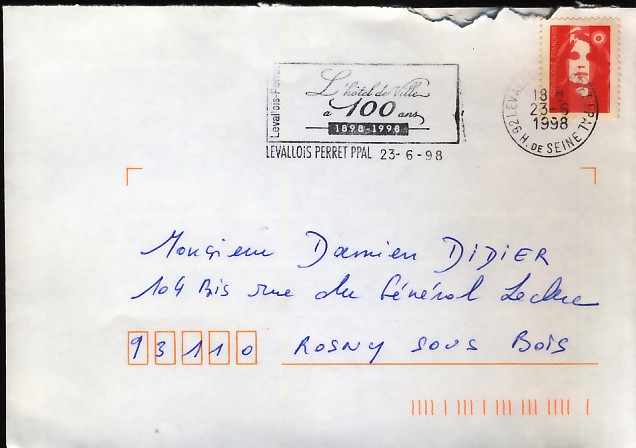 Levallois-Perret
L'hôtel de Ville
a 100 ans
1898-1998
LEVALLOIS PERRET PPAL 23-6-98
92 LEVALLOIS
18
23-6
1998
H. DE SEINE
Monsieur Damien DIDIER
104 Bis rue du Général Leclerc
93110 ROSNY SOUS BOIS